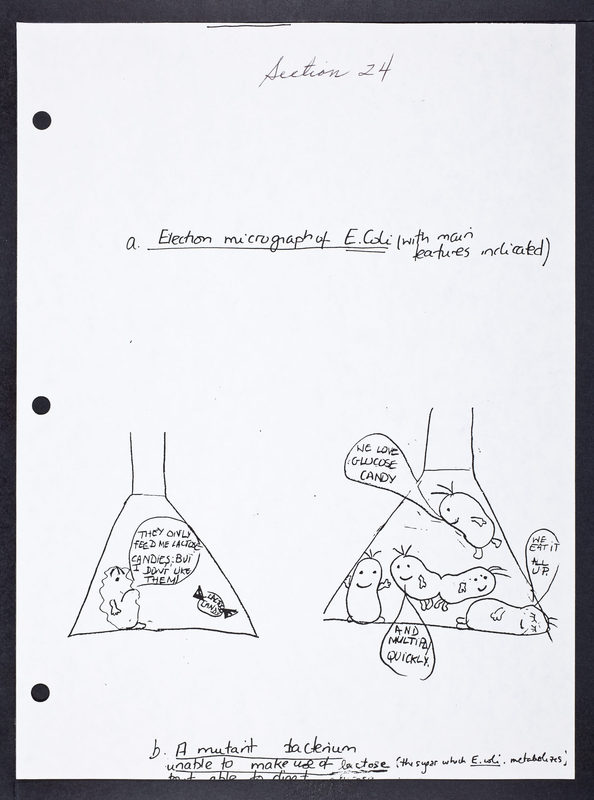 Section 24
a. Electron micrograph of E.Coli (with main
features indicated)
WE LOVE
GLUCOSE
CANDY
THEY ONLY
FEED ME LACTOSE
CANDIES; BUT
I DON'T LIKE
THEM!
LACTOSE
CANDY
WE
EAT IT
ALL
UP.
AND
MULTIPLY
QUICKLY.
b. A mutant bacterium
unable to make use of lactose (the sugar which E.coli metabolizes;
but able to digest